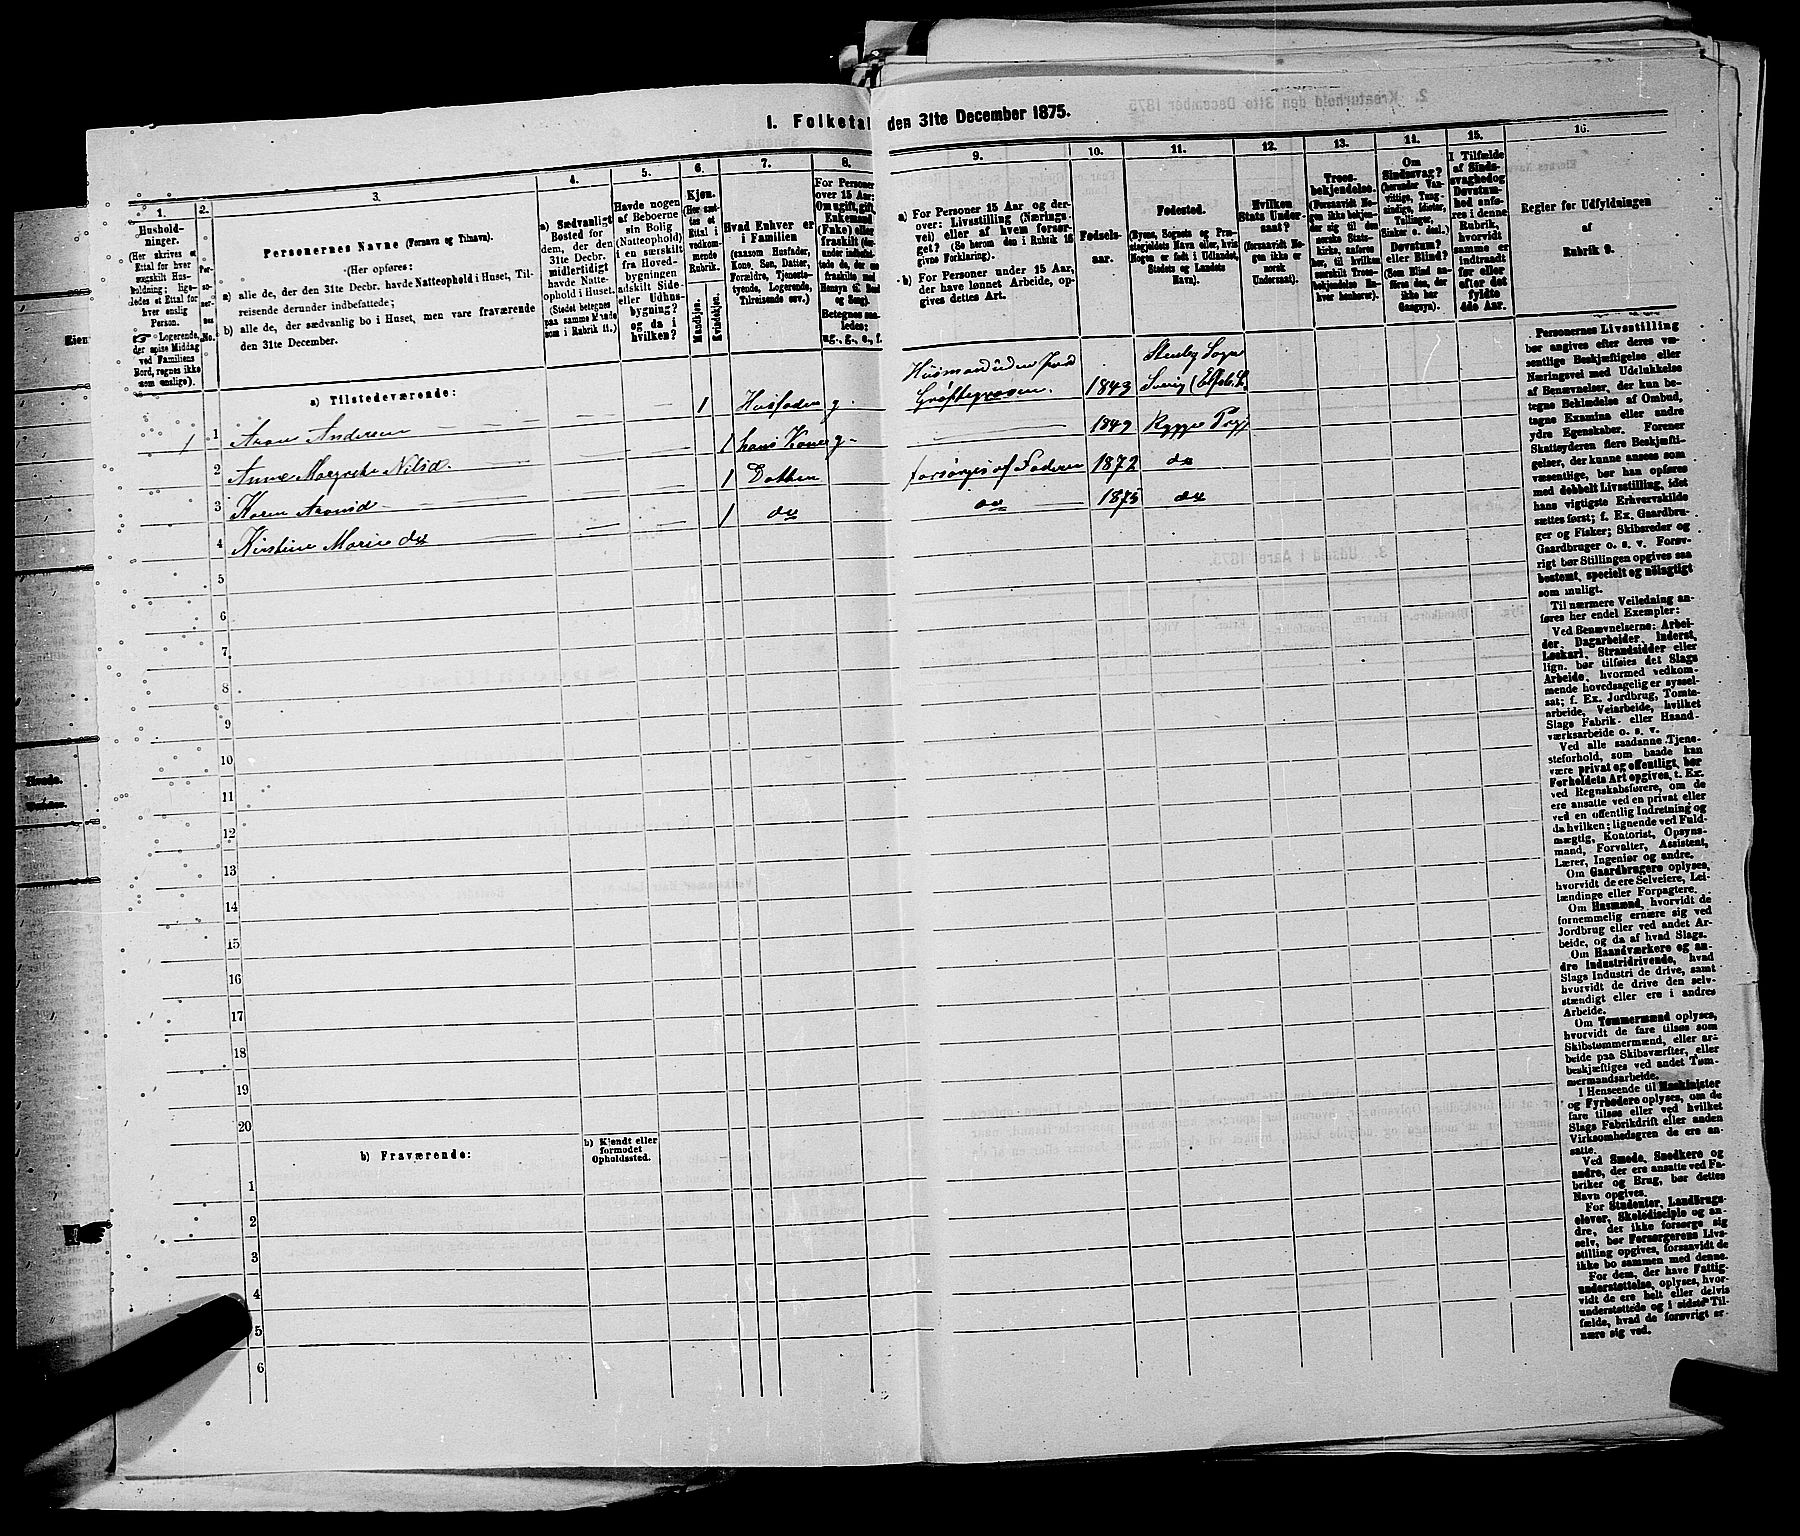 1. Folketal den 31te December 1875.
1.
Hushold-
ninger.
(Her skrives et
Ettal for hver
særskilt Hus-
holdning; lige-
ledes et Ettal for
hver enslig
Person.
Logerende,
der spise Middag
ved Familiens
Bord, regnes ikke
som enslige).
2.
Per-
so-
ner-
nes
No.
3.
Personernes Navne (Fornavn og Tilnavn).
(Her opføres:
a) alle de, der den 31te Decbr. havde Natteophold i Huset, Til-
reisende derunder indbefattede;
b) alle de, der sædvanlig bo i Huset, men vare fraværende
den 31te December.
4.
a) Sædvanligt
Bosted for
dem, der den
31te Decbr.
midlertidigt
havde Natte-
ophold i Huset.
(Stedet betegnes
paa samme Maade
som i Rubrik 11.)
5.
Havde nogen
af Beboerne
sin Bolig
(Natteophold)
i en særskilt
fra Hoved-
bygningen
adskilt Side-
eller Udhus-
bygning?
og da i
hvilken?
6.
Kjøn.
(Her sæt-
tes et
Ettal i
vedkom-
mende
Rubrik.
Mandkjøn.
Kvindekjøn.
7.
Hvad Enhver er
i Familien
(saasom Husfader,
Kone, Søn, Datter,
Forældre, Tjeneste-
tyende, Logerende,
Tilreisende osv.)
8.
For Personer
over 15 Aar:
Om ugift, gift,
Enkemand
(Enke) eller
fraskilt
Betegnes saa-
ledes:
ug., g., e., f.
9.
a) For Personer 15 Aar og der-
over: Livsstilling (Nærings-
vei) eller af hvem forsør-
get? (Se herom den i Rubrik 16
givne Forklaring).
b) For Personer under 15 Aar,
der have lønnet Arbeide, op-
gives dettes Art.
10.
Fødsels-
aar.
11.
Fødested.
(Byens, Sognets og Præ-
stegjeldets Navn eller, hvis
Nogen er født i Udlandet,
Stedets og Landets
Navn).
12.
Hvilken
Stats Under-
saat?
(forsaavidt No-
gen ikke er
norsk
Undersaat).
13.
Troes-
bekjendelse.
(Forsaavidt No-
gen ikke bekjen-
der sig til den
norske Stats-
kirke, anføres
her, til hvilken
særskilt Troes-
bekjendelse En-
hver henhører).
14.
Om
Sindssvag?
(herunder Van-
vittige, Tung-
sindige, Idioter,
Tullinger,
Sinker o. desl.)
Døvstum?
eller Blind?
(Som Blind an-
føres den, der
ikke har
Gangsyn).
15.
I Tilfælde
af Sinds-
svaghed og
Døvstum-
hed anfø-
res i denne
Rubrik,
hvorvidt
samme er
indtraadt
før eller
efter det
fyldte
4de Aar.
16.
Regler for Udfyldningen
af
Rubrik 9.
a) Tilstedeværende:
1 1 Aron Andersen 1 Husfader g. Husmand uden Jord Grøftegraver 1843 Stenby Sogn Sverig
2 Anne Margrethe Nilsd. 1 hans Kone g. 1849 Rygge Prgj
3 Karen Aronsd 1 Datter forsørges af Faderen 1872 do
4 Kirstine Marie do 1 do do 1875 do
5
6
7
8
9
10
11
12
13
14
15
16
17
18
19
20
b) Fraværende:
b) Kjendt eller
formodet
Opholdssted.
1
2
3
4
5
6
Personernes Livsstilling
bør angives efter deres væ-
sentlige Beskjæftigelse eller
Næringsvei med Udelukkelse
af Benævnelser, der kun be-
tegne Beklædelse af Ombud,
tagne Examina eller andre
ydre Egenskaber. Forener
Skatteyderen flere Beskjæfti-
gelser, der kunne ansees som
væsentlige, bør han opføres
med dobbelt Livsstilling, idet
hans vigtigste Erhvervskilde
sættes først; f. Ex. Gaardbru-
ger og Fisker; Skibsreder og
Gaardbruger o. s. v. Forøv-
rigt bør Stillingen opgives saa
bestemt, specielt og nøiagtigt
som muligt.
Til nærmere Veiledning an-
føres her endel Exempler:
Ved Benævnelserne: Arbei-
der, Dagarbeider, Inderst,
Løskarl, Strandsidder eller
lign. bør tilføies det Slags
Arbeide, hvormed vedkom-
mende hovedsagelig er syssel-
sat; f. Ex. Jordbrug, Tomte-
arbeide, Veiarbeide, hvilket
Slags Fabrik- eller Haand-
værksarbeide o. s. v.
Ved alle saadanne Tjene-
steforhold, som baade kan
være privat og offentligt, bør
Forholdets Art opgives, t. Ex.
ved Regnskabsførere, om de
ere ansatte ved en privat eller
ved en offentlig Indretning og
da hvilken; lignende ved Fuld-
mægtig, Kontorist, Opsyns-
mand, Forvalter, Assistent,
Lærer, Ingeniør og andre.
Om Gaardbrugere oplyses,
hvorvidt de ere Selveiere, Lei-
lændinge eller Forpagtere.
Om Husmænd, hvorvidt de
fornemmelig ernære sig ved
Jordbrug eller ved andet Ar-
beide, og da af hvad Slags.
Om Haandværkere og an-
dre Industridrivende, hvad
Slags Industri de drive, samt
hvorvidt de drive den selv-
stændigt eller ere i andres
Arbeide.
Om Tømmermænd oplyses,
hvorvidt de fare tilsøs som
Skibstømmermænd, eller ar-
beide paa Skibsværfter, eller
beskjæftiges ved andet Tøm-
mermandsarbeide.
I Henseende til Maskinister
og Fyrbødere oplyses, om de
fare tilsøs eller ved hvilket
Slags Fabrikdrift eller anden
Virksomhedsgren de ere an-
satte.
Ved Smede, Snedkere og
andre, der ere ansatte ved Fa-
briker og Brug, bør dettes
Navn opgives.
For Studenter, Landbrugs-
elever, Skoledisciple og an-
dre, der ikke forsørge sig
selv, bør Forsørgerens Livs-
stilling opgives, forsaavidt de
ikke bo sammen med denne.
For dem, der have Fattig-
understøttelse, oplyses, hvor-
vidt de ere helt eller delvis
understøttede og i sidste Til-
fælde, hvad de forøvrigt er-
nære sig ved.